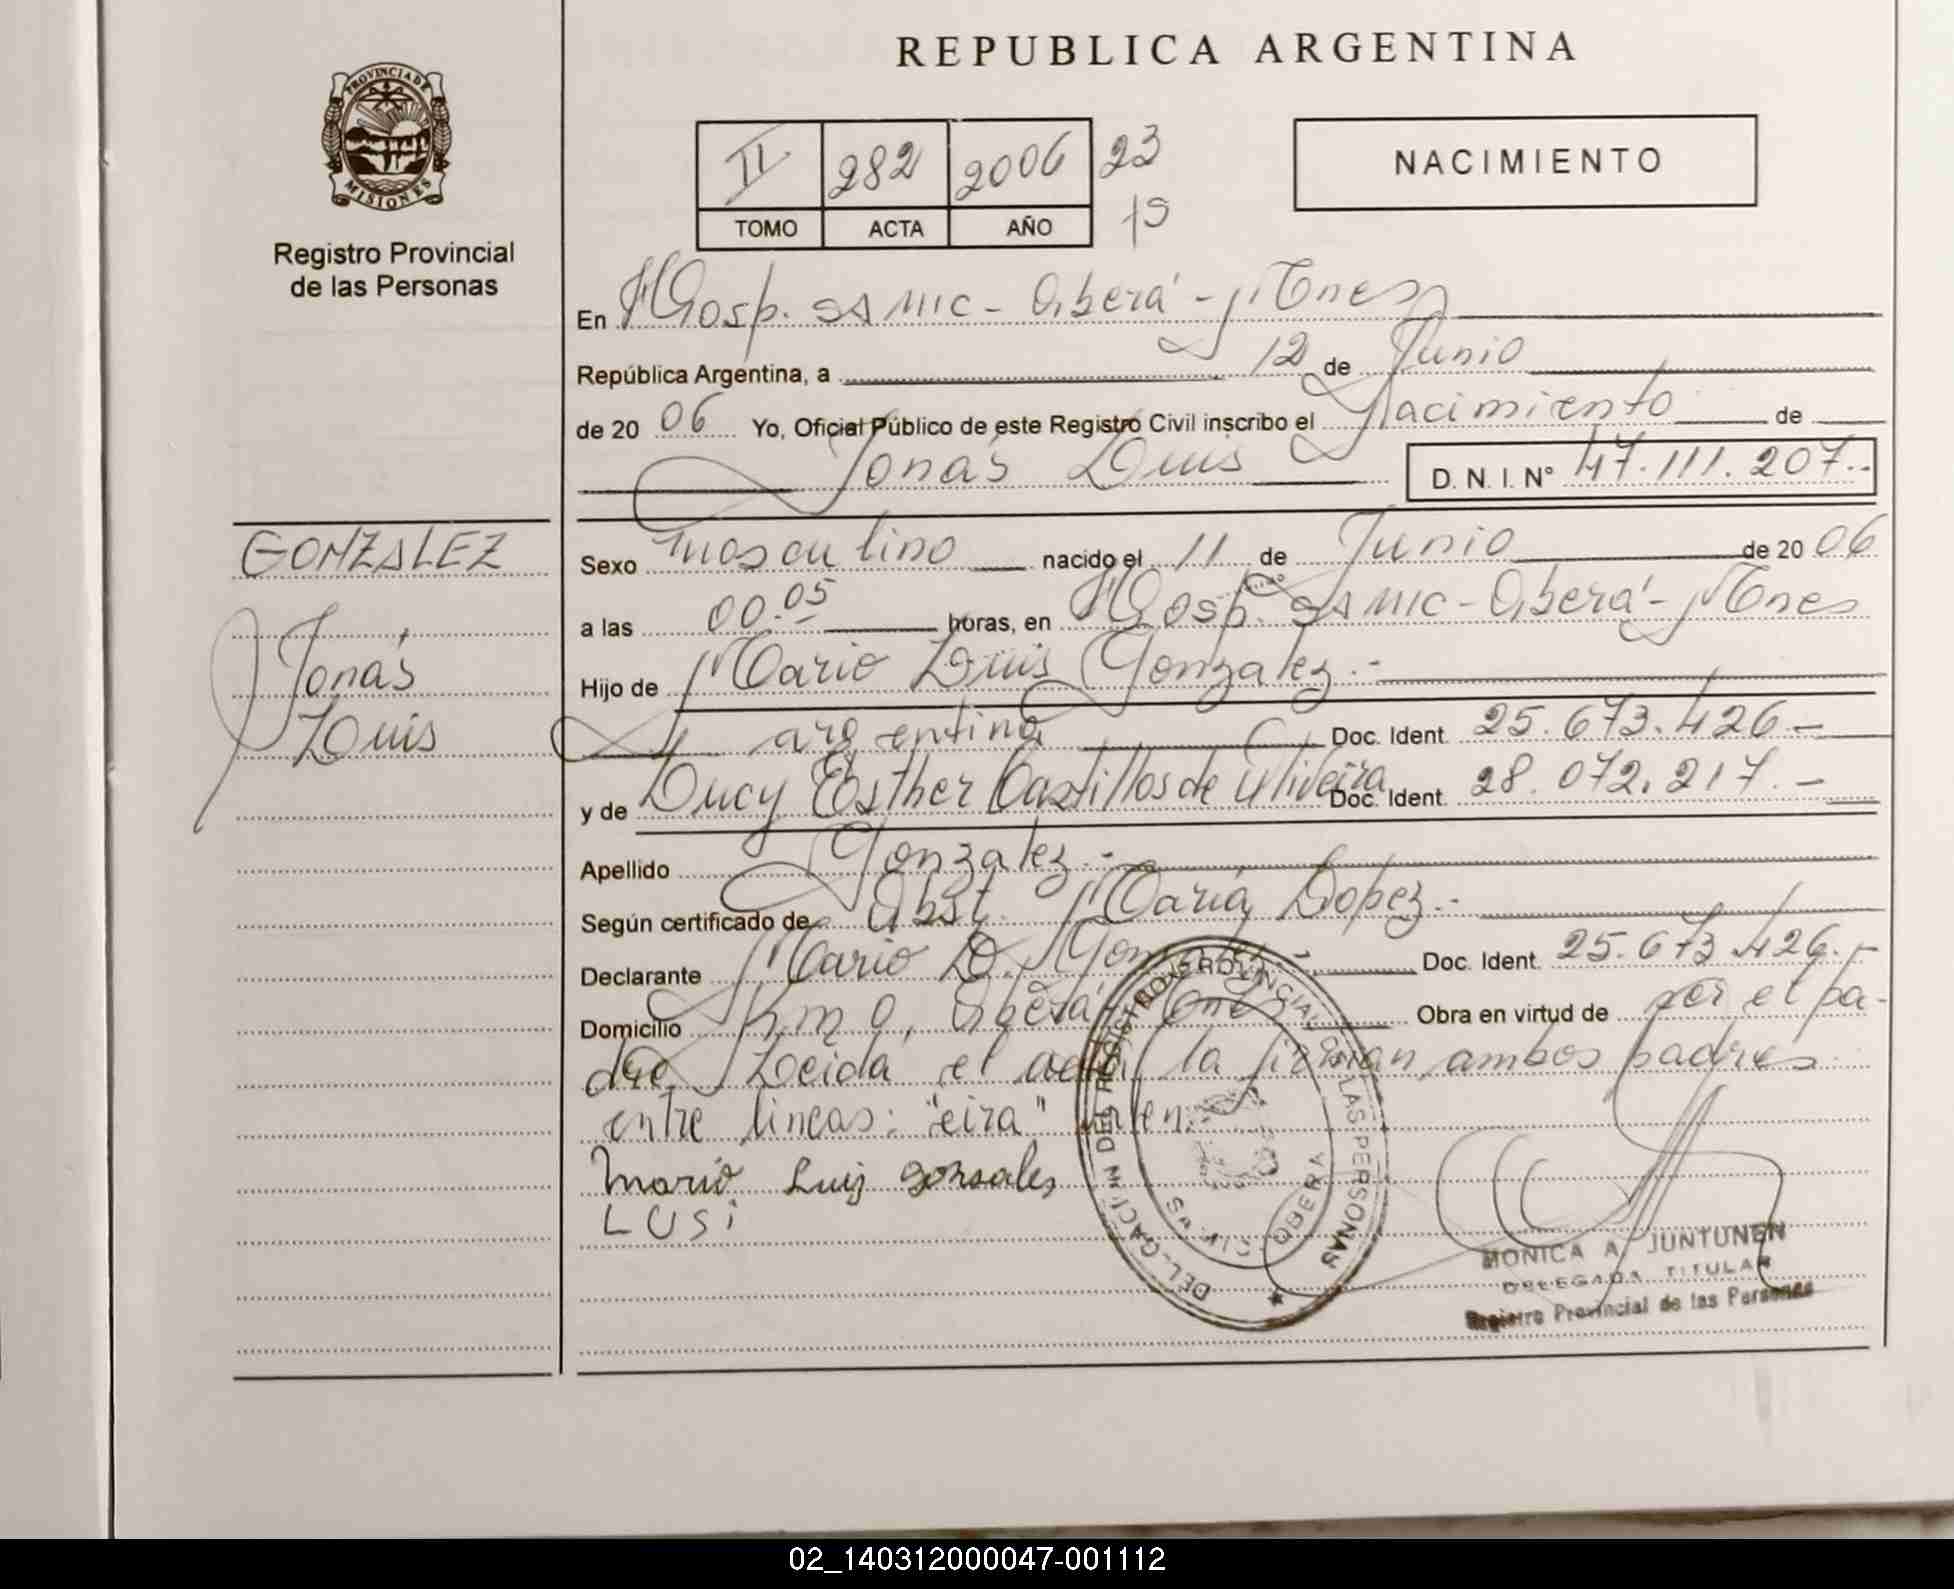 REPUBLICA ARGENTINA
PROVINCIA DE
MISIONES
Registro Provincial
de las Personas
II 282 2006 23
TOMO ACTA AÑO 19
NACIMIENTO
En Hosp. SAMIC - Oberá - Mnes
República Argentina, a 12 de Junio
de 20 06 Yo, Oficial Público de este Registro Civil inscribo el Nacimiento de
Jonás Luis D. N. I. Nº 47.111.207.-
GONZALEZ
Jonás
Luis
Sexo masculino nacido el 11 de Junio de 20 06
a las 00.05 horas, en Hosp. SAMIC - Oberá - Mnes
Hijo de Mario Luis Gonzalez.-
argentina Doc. Ident. 25.673.426.-
y de Lucy Esther Castillos de Oliveira Doc. Ident. 28.072.217.-
Apellido Gonzalez.-
Según certificado de Obst. María Lopez.-
Declarante Mario L. Gonzalez.- Doc. Ident. 25.673.426.-
Domicilio Km 0, Oberá, Mnes Obra en virtud de ser el pa-
dre. Leida el acta la firman ambos padres.
entre lineas: "eira" valen.
Mario Luis gonsales
LUSi
DELEGACION DEL REGISTRO PROVINCIAL DE LAS PERSONAS
OBERA
MONICA A. JUNTUNEN
DELEGADA TITULAR
Registro Provincial de las Personas
02_140312000047-001112